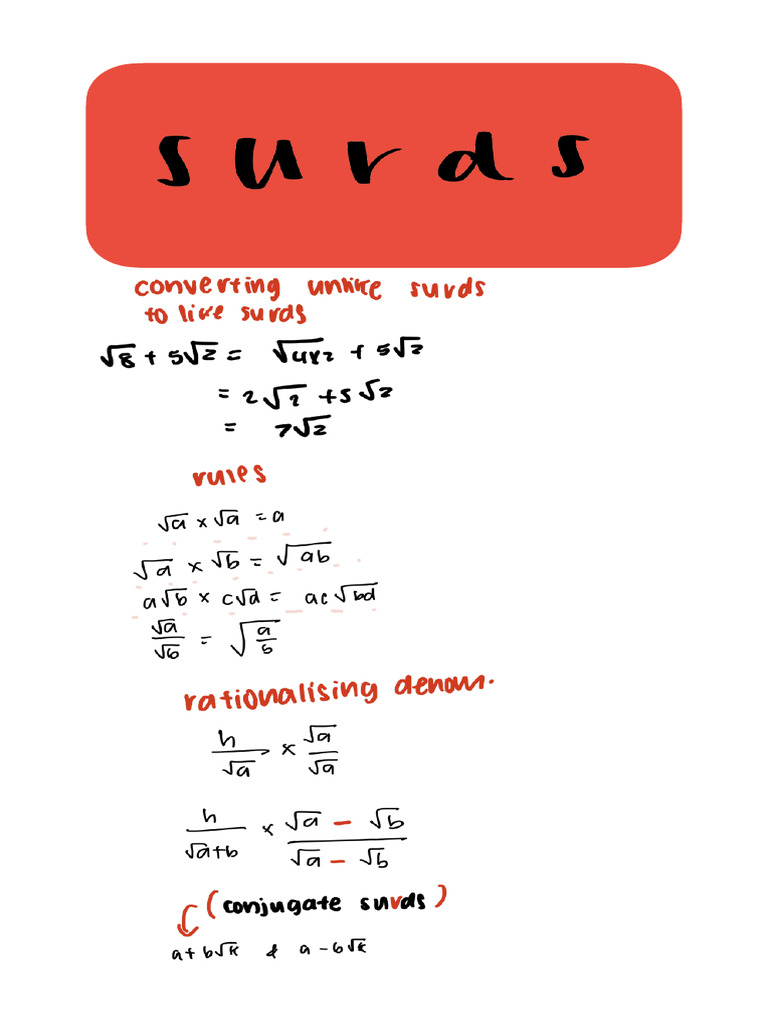 surds
converting unlike surds
to like surds
√8 + 5√2 = √4x2 + 5√2
= 2√2 + 5√2
= 7√2
rules
√a × √a = a
√a × √b = √ab
a√b × c√d = ac√bd
√a/√b = √a/b
rationalising denom.
h/√a × √a/√a
h/√a+b × √a − √b/√a − √b
(conjugate surds)
a + b√k & a − b√k